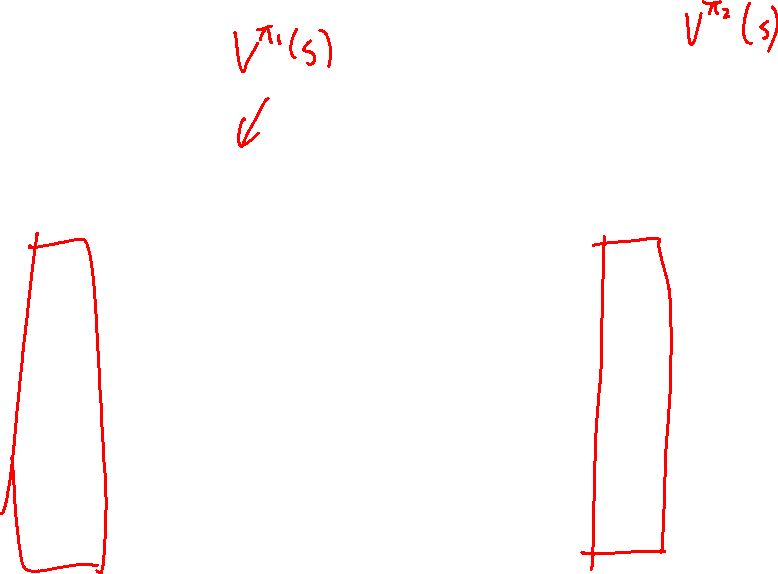 V^π₁(s)
V^π₂(s)